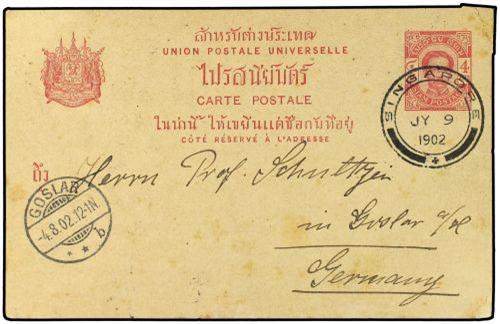 สำหรับต่างประเทศ
UNION POSTALE UNIVERSELLE
ไปรสนียบัตร์
CARTE POSTALE
ในน่านี้ ให้เขียนแต่ชื่อกับที่อยู่
CÔTÉ RÉSERVÉ À L'ADRESSE
4
SINGAPORE
JY 9
1902
ถึง
Herrn Prof.
in Goslar a/H
Germany
GOSLAR
-4.8.02.12-1N.
* * b